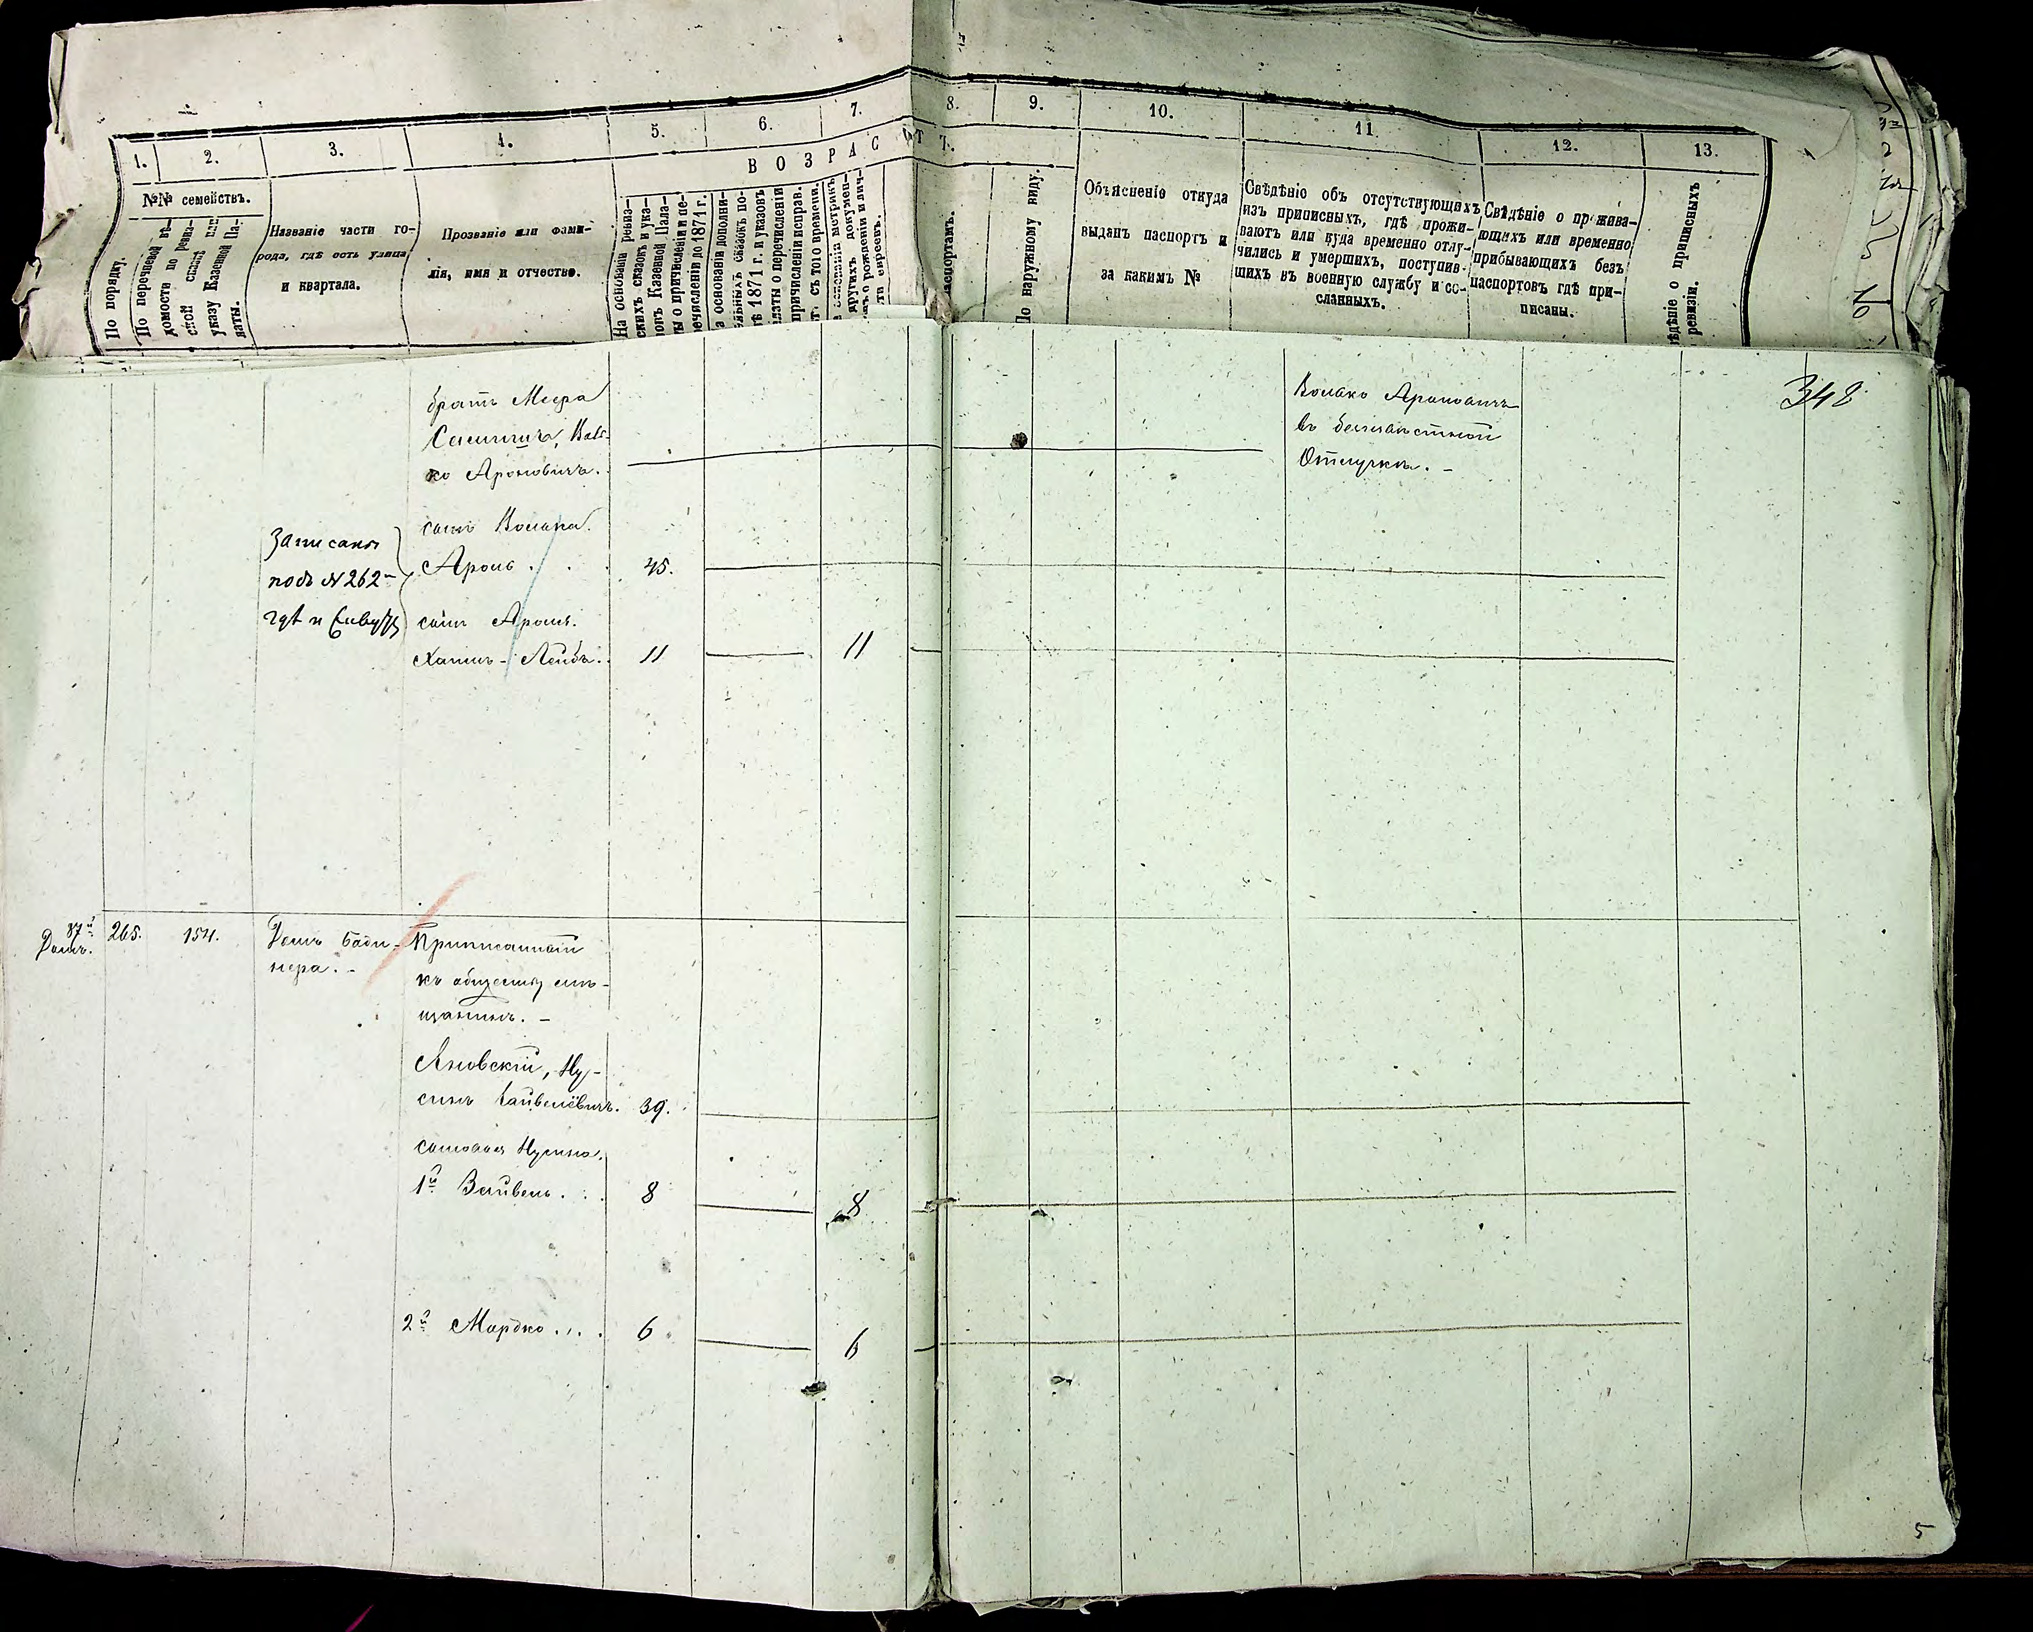 1.
2.
3.
4.
5.
6.
7.
8.
9.
10.
11.
12.
13.
ВОЗРАСТЪ.
№№ семействъ.
По порядку.
По перечневой вѣ-
домости по ревиз-
ской сказкѣ или
указу Казенной Па-
латы.
Названіе части го-
рода, гдѣ есть улица
и квартала.
Прозваніе или фами-
лія, имя и отчество.
На основаніи ревиз-
скихъ сказокъ и ука-
зовъ Казенной Пала-
ты о причисленіи и пе-
речисленіи до 1871 г.
на основаніи дополни-
тельныхъ сказокъ по-
слѣ 1871 г. и указовъ
палаты о перечисленіи
и причисленіи исправ.
лѣтъ съ того времени.
на основаніи метрикъ
и другихъ докумен-
товъ о рожденіи и лич-
ности евреевъ.
паспортамъ.
По наружному виду.
Объясненіе откуда
выданъ паспортъ и
за какимъ №
Свѣдѣніе объ отсутствующихъ
изъ приписныхъ, гдѣ прожи-
ваютъ или куда временно отлу-
чились и умершихъ, поступив-
шихъ въ военную службу и со-
сланныхъ.
Свѣдѣніе о прожива-
ющихъ или временно
прибывающихъ безъ
паспортовъ гдѣ при-
писаны.
Свѣдѣніе о приписныхъ
ревизіи.
348
братъ Меера
Волько Ароновичъ
въ безызвѣстной
Отлучкѣ. –
ко Ароновичъ.
сынъ Волька.
Записаны
подъ № 262
гдѣ и слѣдуетъ
Аронъ . . . 45.
сынъ Арона.
Хаимъ-Лейбъ. 11 11
87й
Домъ.
265. 154.
Домъ Бади-
нера. –
Приписанный
къ обществу мѣ-
щанинъ. –
Яновскій, Ну-
синъ Зайвелёвичъ. 39.
сыновья Нусина.
1й Зайвель . . . 8 8
2й Мордко . . . 6 6
5